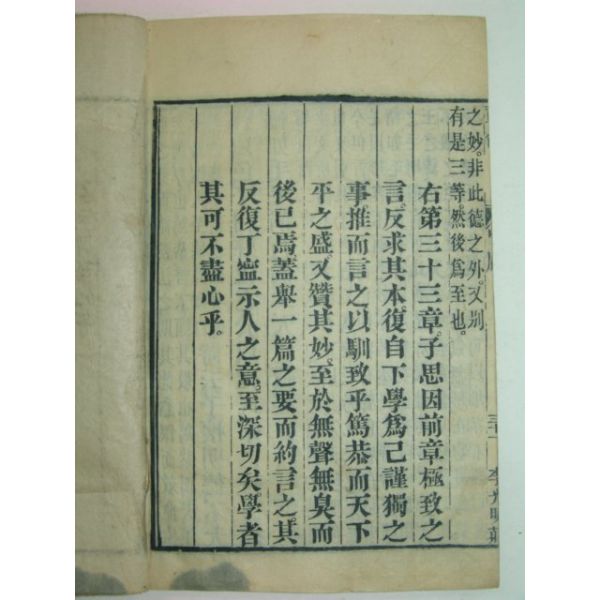 之妙。非此德之外。又別
有是三等。然後爲至也。
右第三十三章。子思因前章極致之
言。反求其本。復自下學爲己謹獨之
事。推而言之。以馴致乎篤恭而天下
平之盛。又贊其妙。至於無聲無臭而
後已焉。蓋舉一篇之要而約言之。其
反復丁寧示人之意。至深切矣。學者
其可不盡心乎。
李光明莊